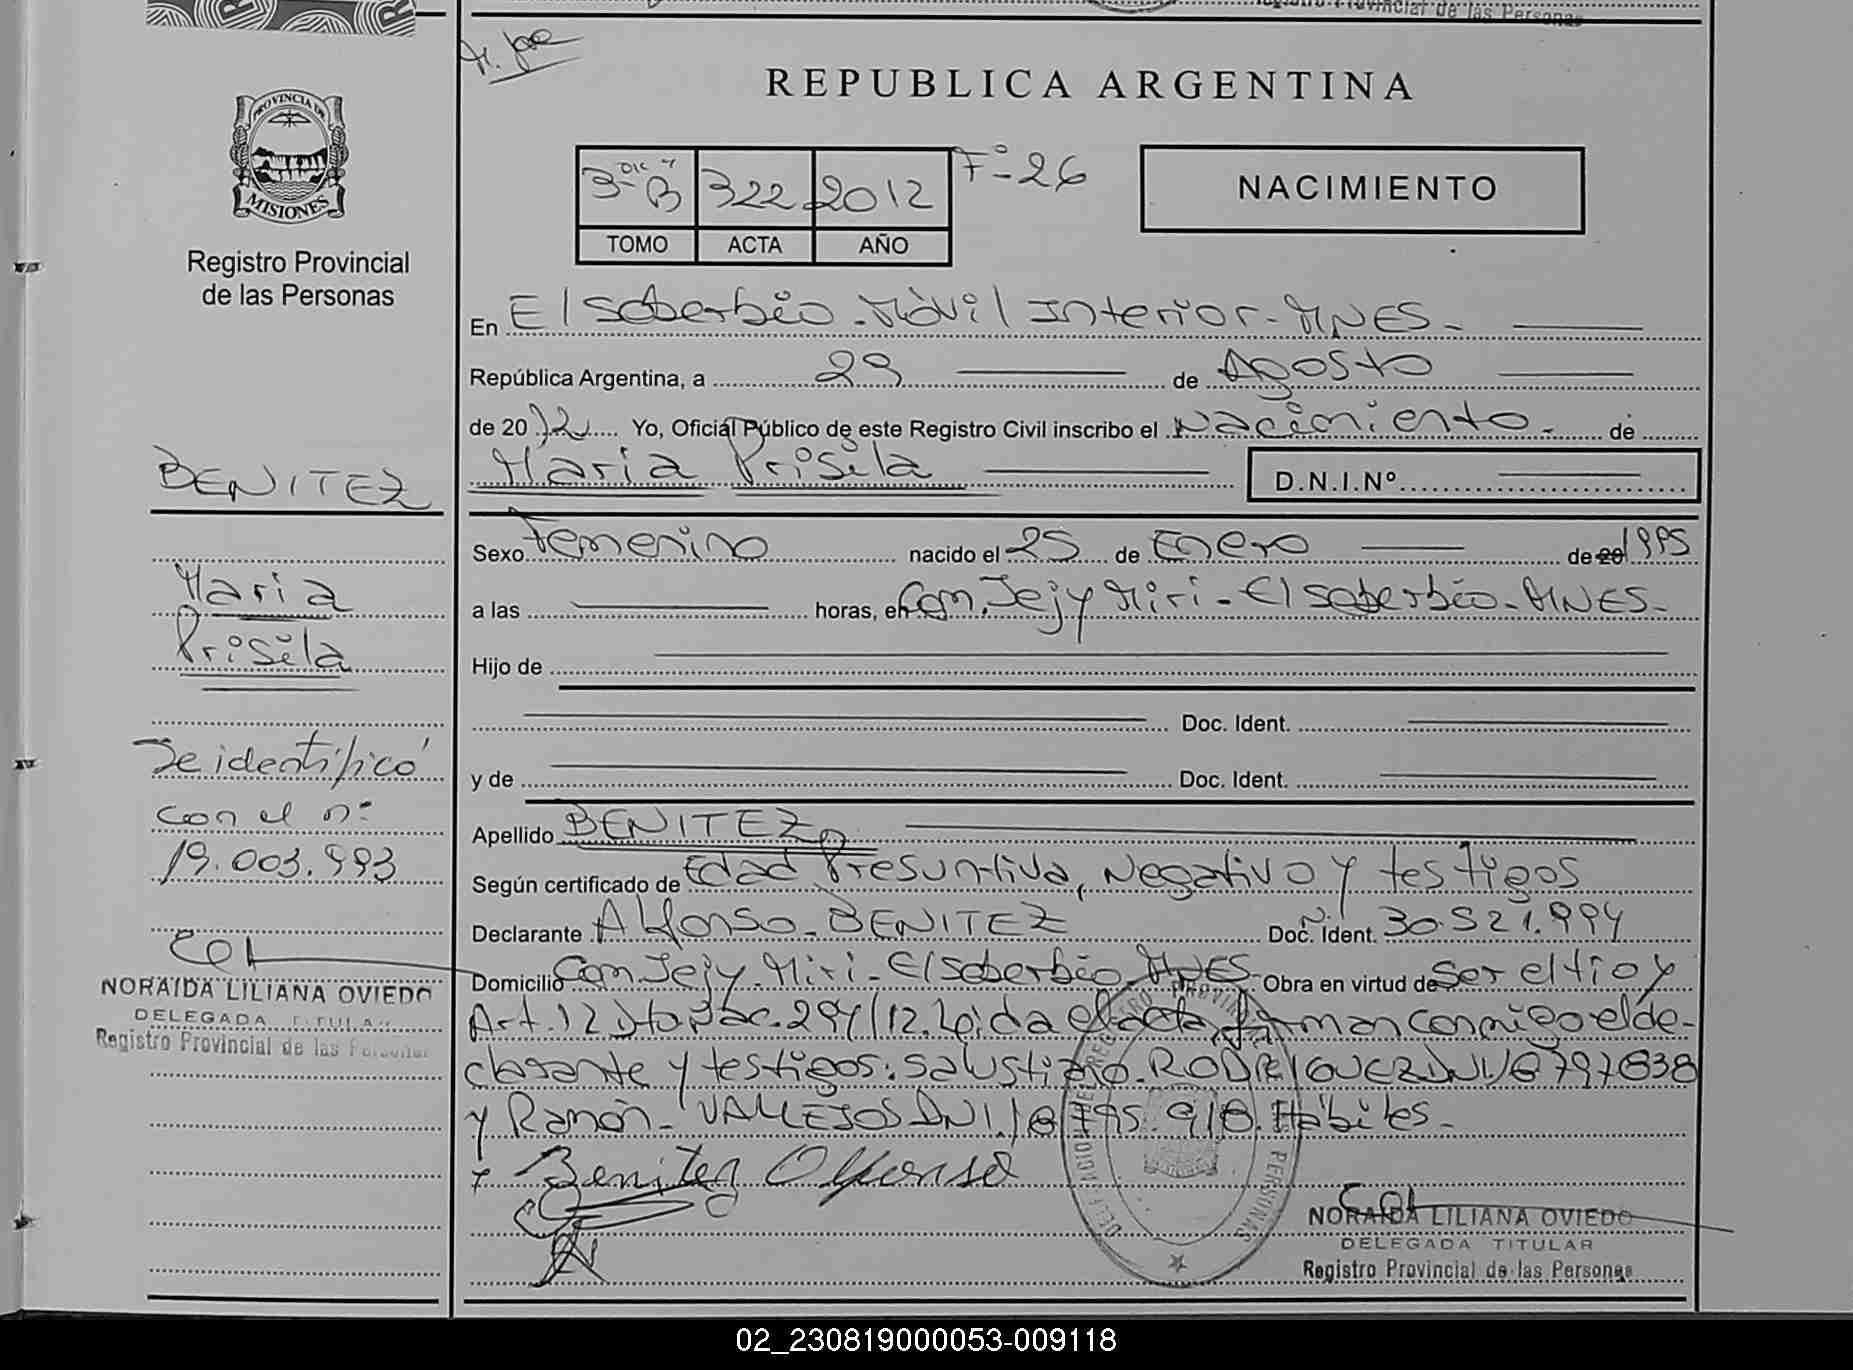 Registro Provincial de las Personas
REPUBLICA ARGENTINA
PROVINCIA DE
MISIONES
Registro Provincial
de las Personas
3- B 322 2012 Fº-26
DIC
TOMO ACTA AÑO
NACIMIENTO
En El Soberbio - Móvil Interior - MNES -
República Argentina, a 29 de Agosto
de 2012 Yo, Oficial Público de este Registro Civil inscribo el Nacimiento - de
Maria Prisila D.N.I.Nº
Sexo Femenino nacido el 25 de Enero de 20 1995
a las horas, en Com. Jejy Miri - El Soberbio - MNES -
Hijo de
Doc. Ident.
y de Doc. Ident.
Apellido BENITEZ
Según certificado de Edad Presuntiva, Negativo y testigos
Declarante Alfonso - BENITEZ D.N.I. Doc. Ident. 30.521.994
Domicilio Com. Jejy - Miri - El Soberbio - MNES - Obra en virtud de Ser el tio y
Art. 12 Dto. Nac. 294/12. Leida el acta, firman conmigo el de-
clarante y testigos: Salustiano - RODRIGUEZ DNI 18797838
y Ramón - VALLEJOS DNI 18795.918. Hábiles -
Benitez Alfonso
NORAIDA LILIANA OVIEDO
DELEGADA TITULAR
Registro Provincial de las Personas
BENITEZ
Maria
Prisila
Se identificó
con el nº
19.003.993
NORAIDA LILIANA OVIEDO
DELEGADA TITULAR
Registro Provincial de las Personas
02_230819000053-009118